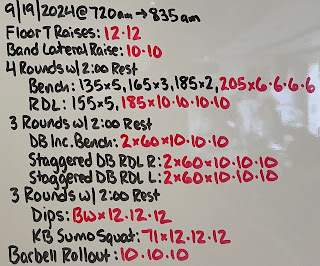 9/19/2024@720am→835am
Floor T Raises: 12·12
Band Lateral Raise: 10·10
4 Rounds w/ 2:00 Rest
Bench: 135x5, 165x3, 185x2, 205x6·6·6·6
RDL: 155x5, 185x10·10·10·10
3 Rounds w/ 2:00 Rest
DB Inc. Bench: 2x60x10·10·10
Staggered DB RDL R: 2x60x10·10·10
Staggered DB RDL L: 2x60x10·10·10
3 Rounds w/ 2:00 Rest
Dips: BWx12·12·12
KB Sumo Squat: 71x12·12·12
Barbell Rollout: 10·10·10